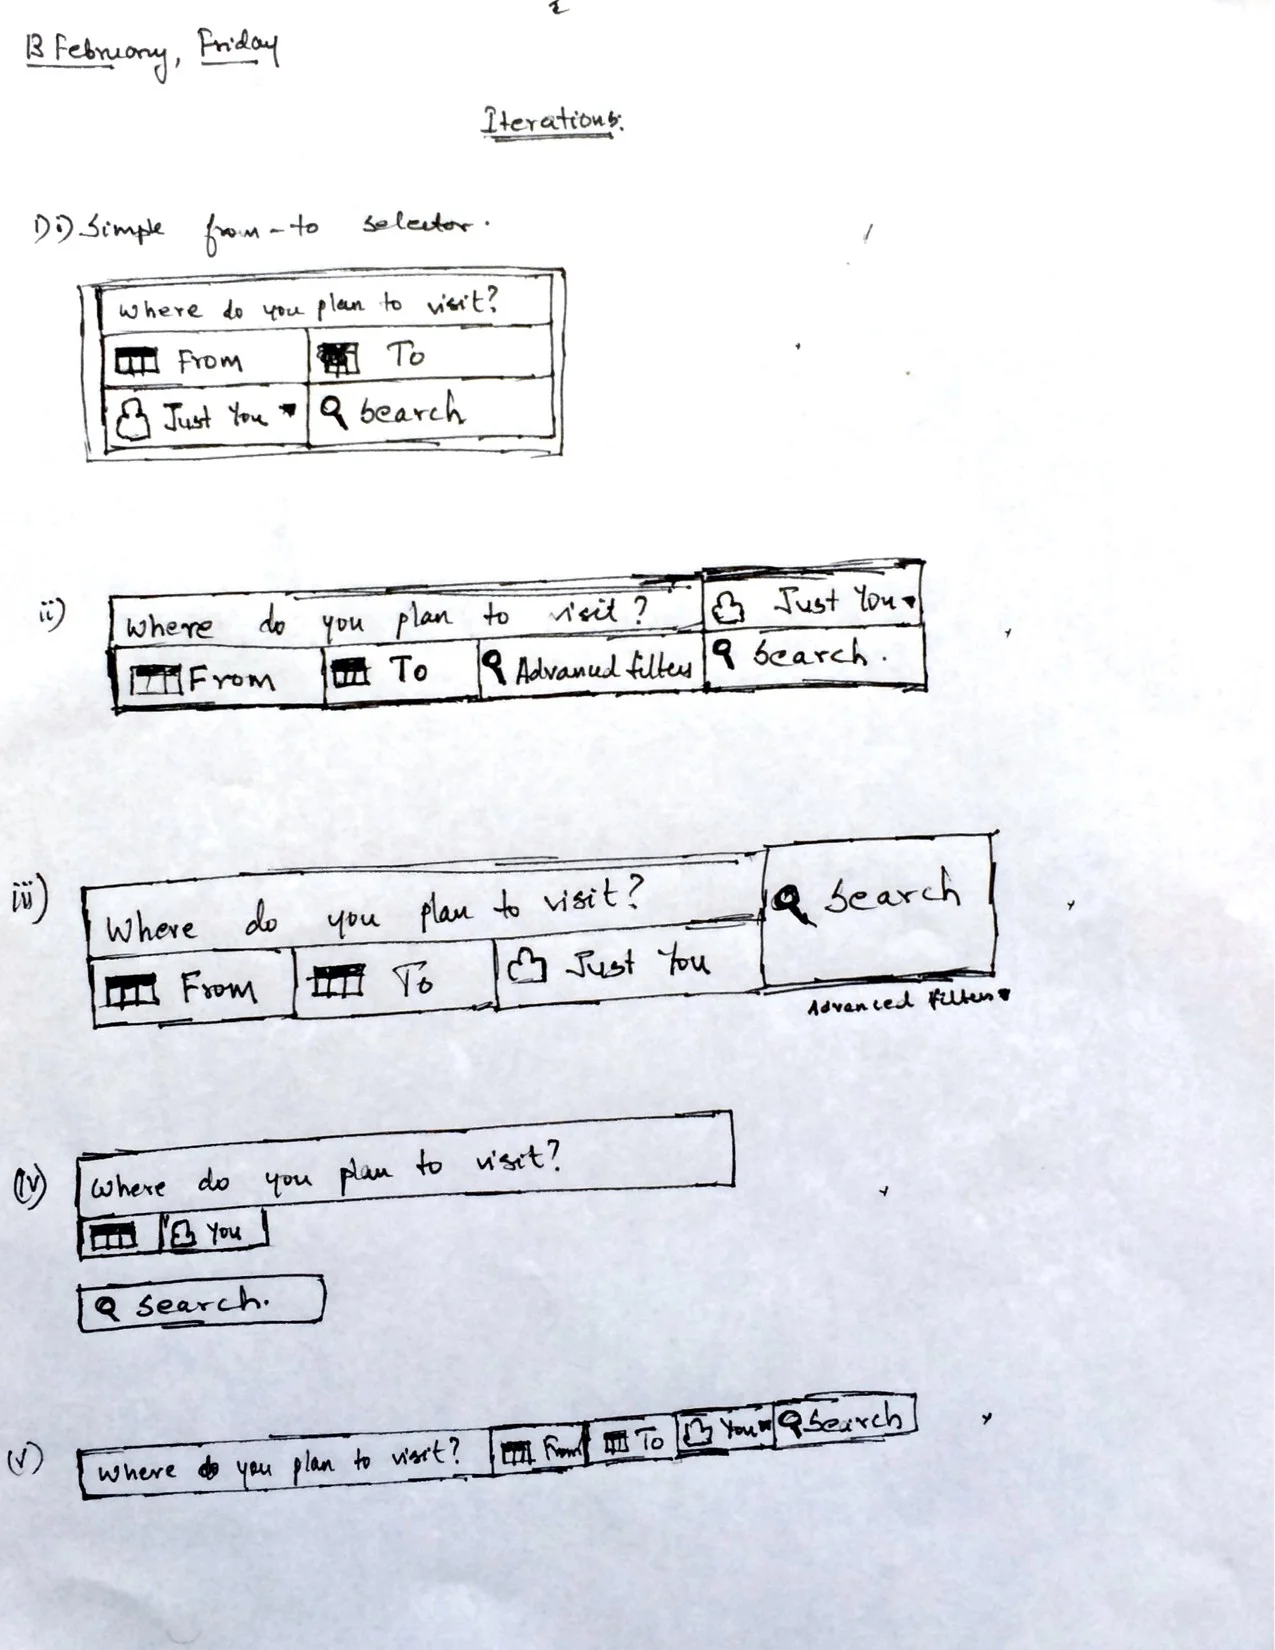 13 February, Friday
Iterations:
1) i) Simple from-to selector.
Where do you plan to visit?
From To
Just You Search
ii)
Where do you plan to visit? Just You
From To Advanced filters Search.
iii)
Where do you plan to visit? Search
From To Just You
Advanced filters
(iv)
Where do you plan to visit?
You
Search.
(v)
Where do you plan to visit? From To You Search